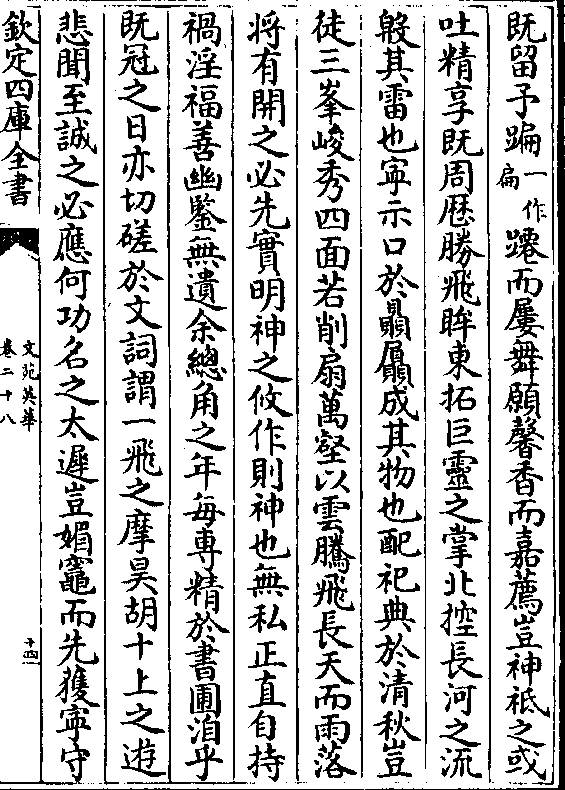 既留予蹁一作扁躚而屢舞願馨香而嘉薦豈神祇之或
吐精享既周歴勝飛眸東拓巨靈之掌北控長河之流
殷其雷也寜示口於贔屭成其物也配祀典於清秋豈
徒三峯峻秀四面若削扇萬壑以雲騰飛長天而雨落
将有開之必先實明神之攸作則神也無私正直自持
禍淫福善幽鑒無遺余總角之年每專精於書圃洎乎
既冠之日亦切磋於文詞謂一飛之摩昊胡十上之遊
悲聞至誠之必應何功名之太遲豈媚竈而先獲寜守
欽定四庫全書
文苑英華
卷二十八
十四